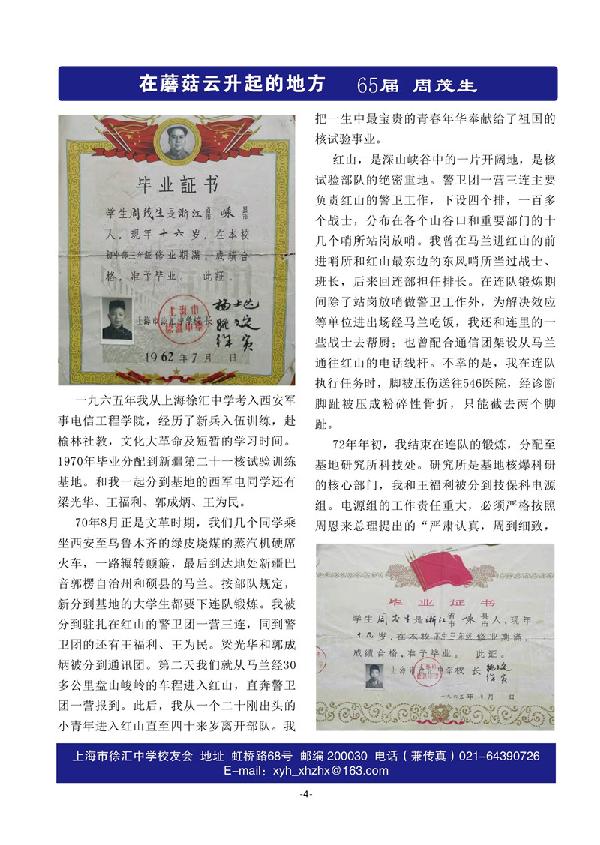 在蘑菇云升起的地方 65届 周茂生
毕业证书
学生周茂生是浙江省嵊县
人,现年十六岁,在本校
初中第三年级修业期满,成绩合
格,准予毕业。此证。
上海市徐汇中学校长
1962年7月 日
一九六五年我从上海徐汇中学考入西安军
事电信工程学院,经历了新兵入伍训练,赴
榆林社教,文化大革命及短暂的学习时间。
1970年毕业分配到新疆第二十一核试验训练
基地。和我一起分到基地的西军电同学还有
梁光华、王福利、郭成炳、王为民。
70年8月正是文革时期,我们几个同学乘
坐西安至乌鲁木齐的绿皮烧煤的蒸汽机硬席
火车,一路辗转颠簸,最后到达地处新疆巴
音郭楞自治州和硕县的马兰。按部队规定,
新分到基地的大学生都要下连队锻炼。我被
分到驻扎在红山的警卫团一营三连,同到警
卫团的还有王福利、王为民。梁光华和郭成
炳被分到通讯团。第二天我们就从马兰经30
多公里盘山峻岭的车程进入红山,直奔警卫
团一营报到。此后,我从一个二十刚出头的
小青年进入红山直至四十来岁离开部队。我
把一生中最宝贵的青春年华奉献给了祖国的
核试验事业。
红山,是深山峡谷中的一片开阔地,是核
试验部队的绝密重地。警卫团一营三连主要
负责红山的警卫工作,下设四个排,一百多
个战士,分布在各个山谷口和重要部门的十
几个哨所站岗放哨。我曾在马兰进红山的前
进哨所和红山最东边的东风哨所当过战士、
班长,后来回连部担任排长。在连队锻炼期
间除了站岗放哨做警卫工作外,为解决效应
等单位进出场经马兰吃饭,我还和连里的一
些战士去帮厨;也曾配合通信团架设从马兰
通往红山的电话线杆。不幸的是,我在连队
执行任务时,脚被压伤送往546医院,经诊断
脚趾被压成粉碎性骨折,只能截去两个脚
趾。
72年年初,我结束在连队的锻炼,分配至
基地研究所科技处。研究所是基地核爆科研
的核心部门,我和王福利被分到技保科电源
组。电源组的工作责任重大,必须严格按照
周恩来总理提出的“严肃认真,周到细致,
毕业证书
学生周茂生是浙江省嵊县人,现年
十九岁,在本校高中三年级修业期满,
成绩合格,准予毕业。此证。
上海市徐汇中学校长
一九六五年 月 日
上海市徐汇中学校友会 地址 虹桥路68号 邮编 200030 电话(兼传真)021-64390726
E-mail:xyh_xhzhx@163.com
-4-